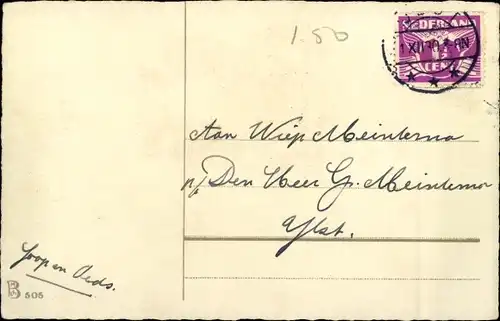 1.50
NEDERLAND
CENT
Aan Wiep Meintema
p/a Den Heer G. Meintema
Ylst.
Joop en Oeds.
B 505